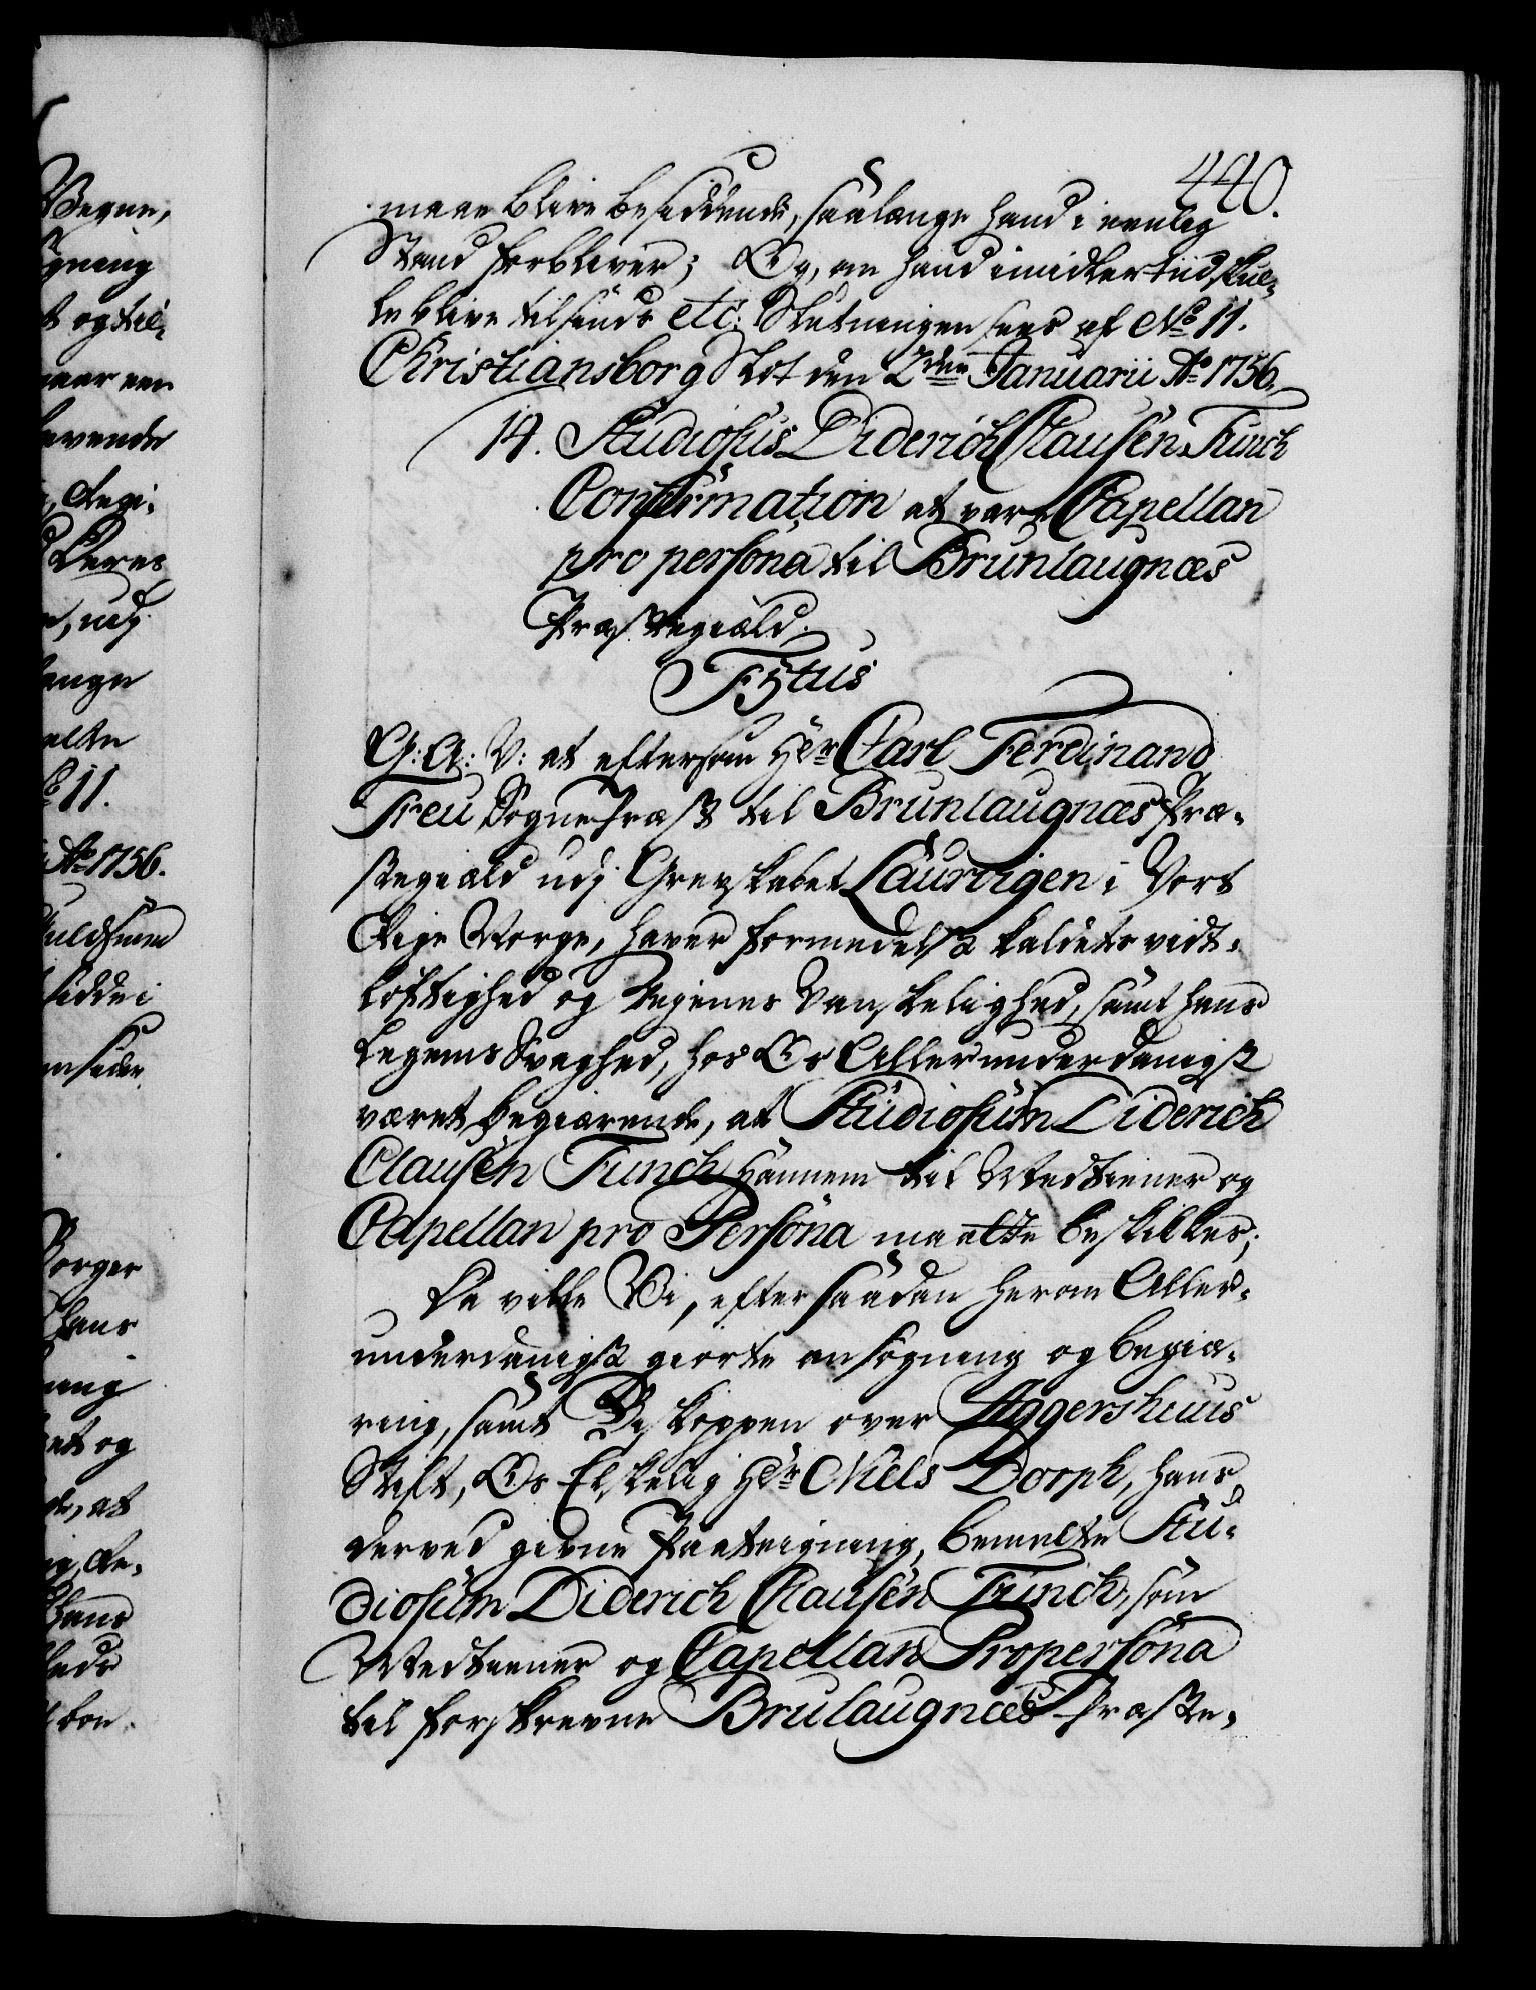 440.
maae blive besiddende, saalænge hand i eenlig
Stand forbliver; Og, om hand imidlertiid skul-
le blive tilsinds etc: Slutningen sees af No 11.
Christiansborg Slot den 2den Januarii Ao 1756.
14. Studiosus Diderich Clausen Funch
Confirmation at være Capellan
pro persona til Brunlaugnæs
Præstegiæld.
F5tus
G: A: V: at eftersom Hr Carl Ferdinand
Treu Sognepræst til Brunlaugnæs Præ-
stegiæld udj Grevskabet Laurvigen i Vort
Rige Norge, haver formedelst Kaldets vidt-
løftighed og Veyenes Vanskelighed, samt hans
Legems Svaghed, hos Os Allerunderdanigst
været begiærende, at Studiosum Diderich
Clausen Funch Hannem til Medtiener og
Capellan pro Persona maatte beskikkes;
Da ville Vi, efter saadan herom Aller-
underdanigst giorte ansøgning og begiæ-
ring, samt Biskoppen over Aggershuus
Stift, Os Elskelig Hr Niels Dorph, hans
derved givne Paategning, bemelte Stu-
diosum Diderich Clausen Funch, som
Medtiener og Capellan Propersona
til forskrevne Brulaugnæs Præste-
Vegne,
og til-
1756.
at og
, at
No 11.